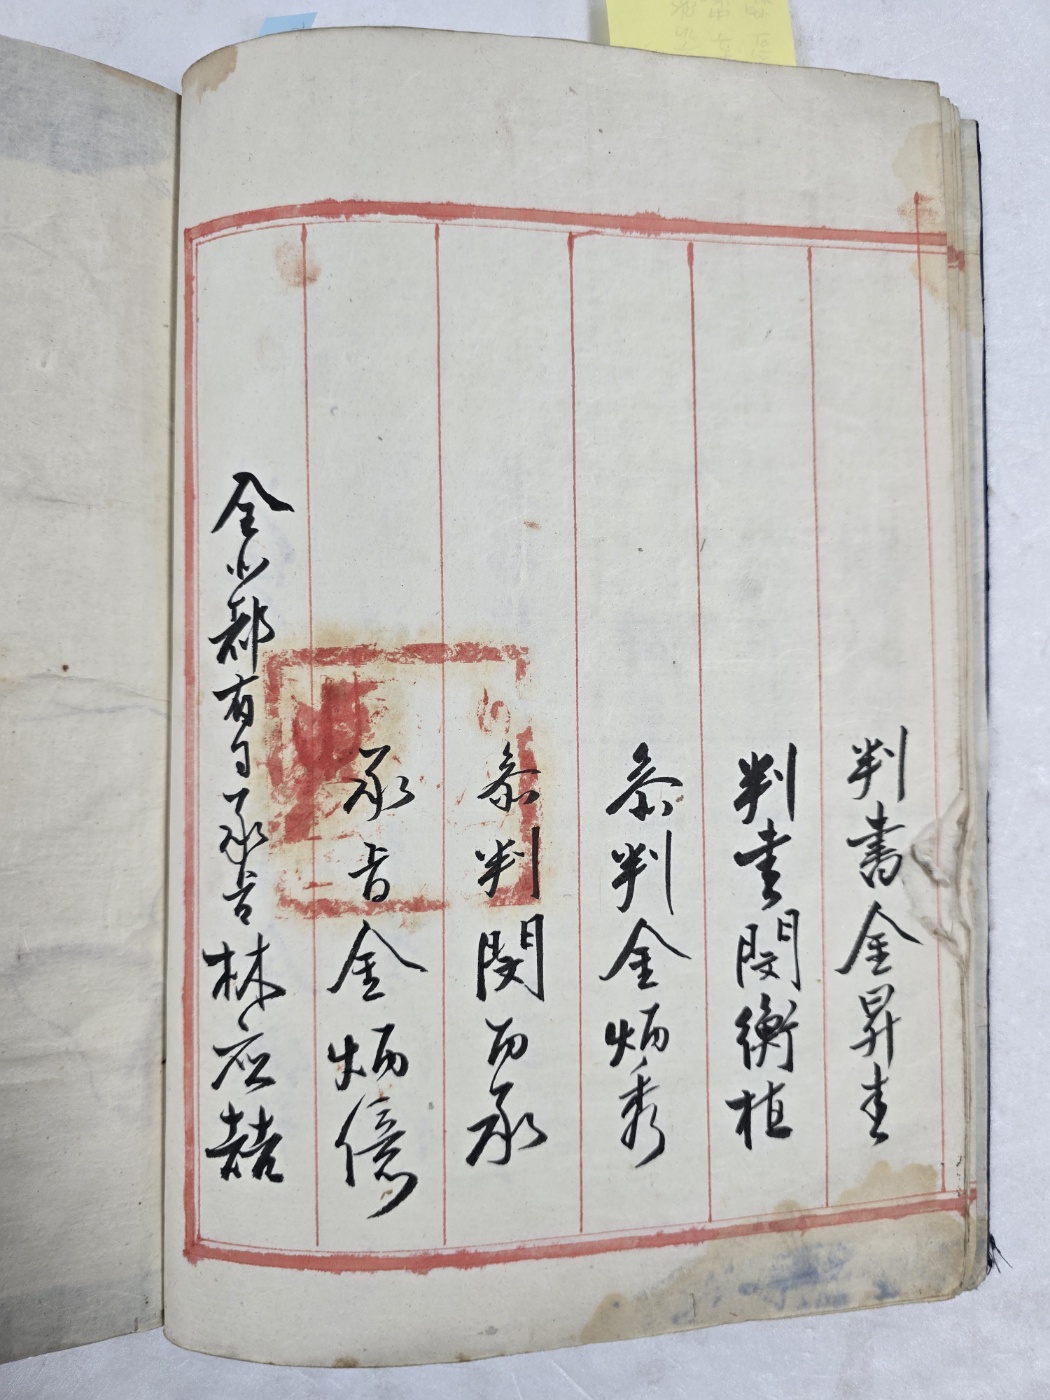 判書金昇圭
判書閔衡植
參判金炳秀
參判閔丙承
承旨金炳億
全州郡前行承旨林應喆